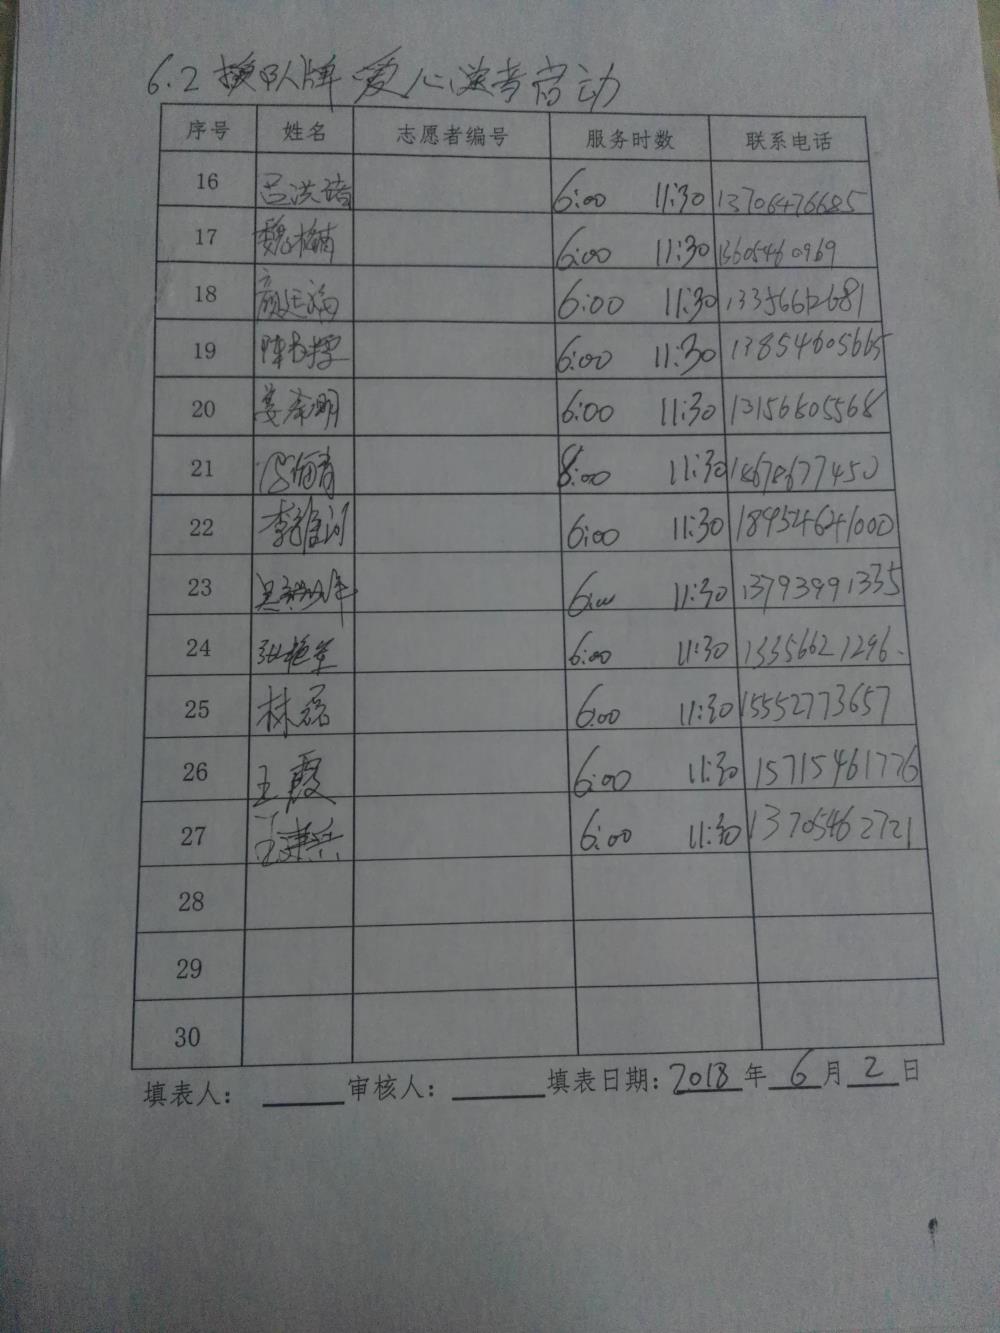 6.2 换队牌 爱心送考启动
序号 姓名 志愿者编号 服务时数 联系电话
16 吕洪 6:00 11:30 13706476685
17 魏楠 6:00 11:30 13605460969
18 颜廷 6:00 11:30 13356612681
19 陈 6:00 11:30 13854605665
20 姜 明 6:00 11:30 13156605568
21 青 8:00 11:30 18678677450
22 李 6:00 11:30 18954641000
23 6:00 11:30 13793991335
24 张艳 6:00 11:30 13356621296
25 林磊 6:00 11:30 15552773657
26 王霞 6:00 11:30 15715461776
27 王建兵 6:00 11:30 13705462721
28
29
30
填表人: 审核人: 填表日期:2018年6月2日